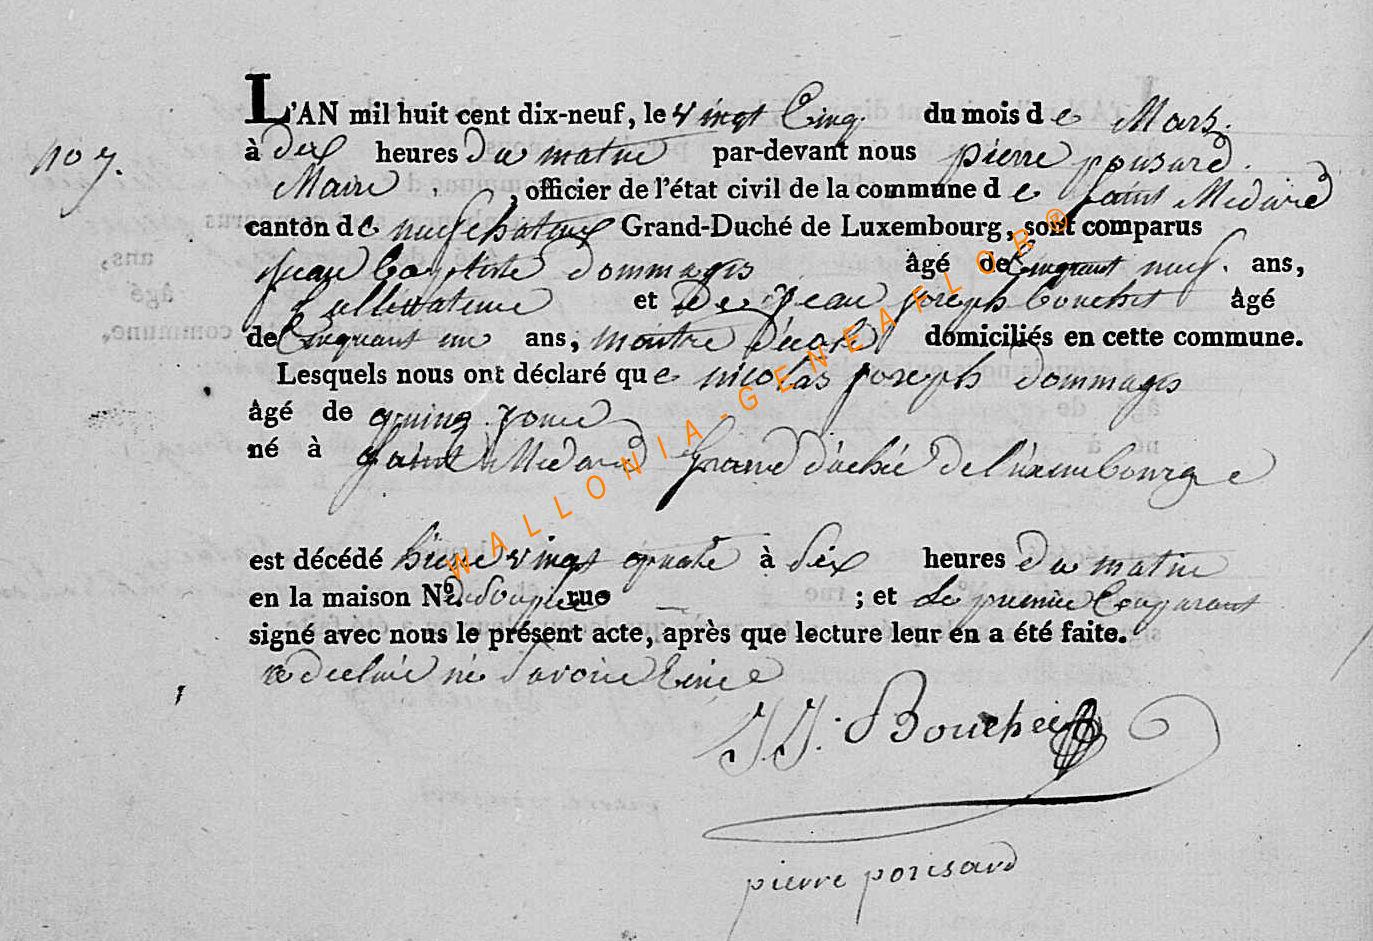 no 7.
L'AN mil huit cent dix-neuf, le vingt Cinq. du mois de Mars.
à dix heures du matin par-devant nous pierre ponsard.
Maire, officier de l'état civil de la commune de saint Medard
canton de neufchateau Grand-Duché de Luxembourg, sont comparus
jean baptiste dommages âgé de Cinquant neuf. ans,
Cultivateur et De jean joseph bouchet âgé
de Cinquant un ans, maitre d'ecole domiciliés en cette commune.
Lesquels nous ont déclaré que nicolas joseph dommages
âgé de quinz jour
né à saint Medard Grand duché de luxembourge
est décédé hiere vingt quatre à dix heures du matin
en la maison No. rue ; et Le premier Comparant
signé avec nous le présent acte, après que lecture leur en a été faite.
a declaré ne savoire
J. J. Bouchet
pierre ponsard
WALLONIA-GENEAFLOR®